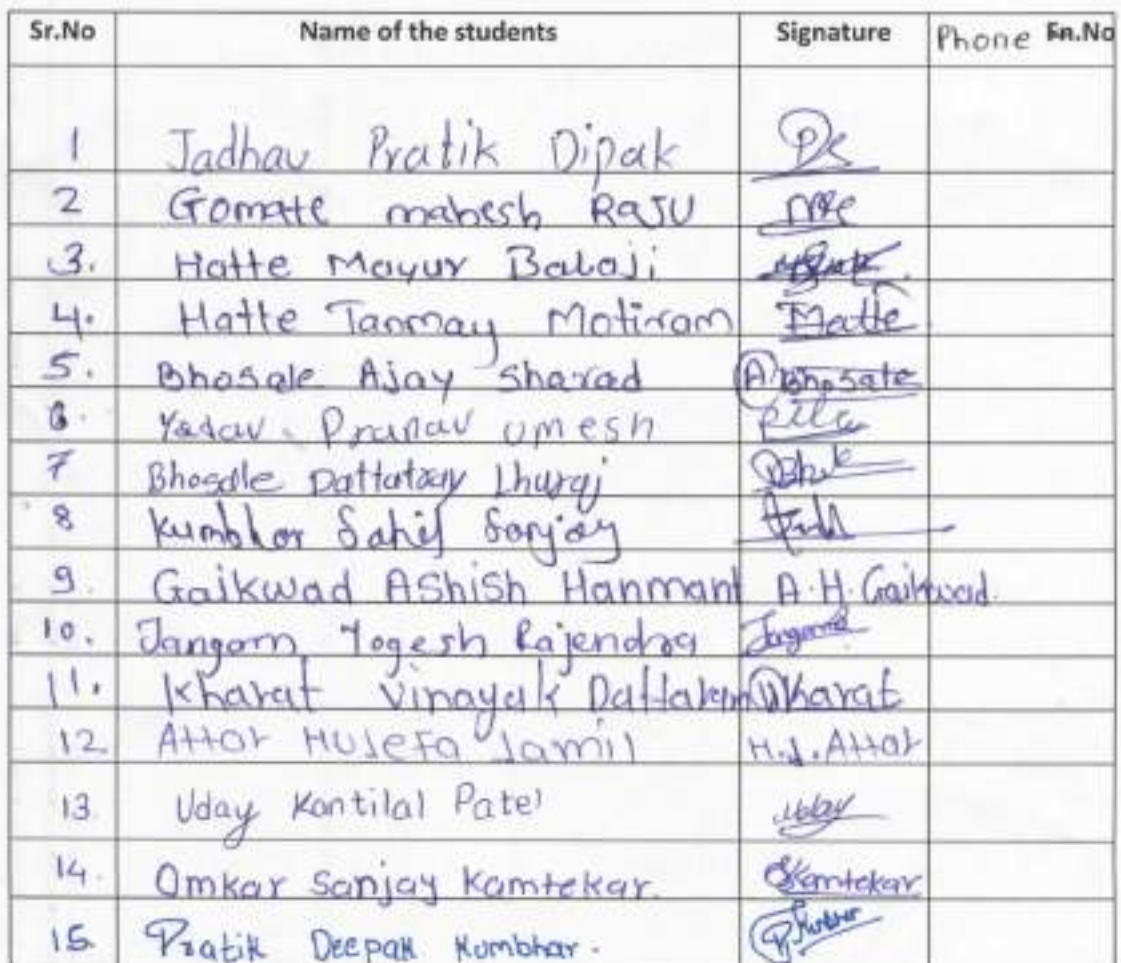 Sr.No Name of the students Signature Phone En.No
1 Jadhav Pratik Dipak
2 Gomate mahesh RaJU
3. Hatte Mayur Balaji
4. Hatte Tanmay Motiram Hatte
5. Bhosale Ajay Sharad A Bhosale
6. Yadav Pranav umesh
7 Bhosale Dattatray
8 Kumbhar Sahil Sanjay
9. Gaikwad AShiSh Hanmant A.H.Gaikwad.
10. Jangam Yogesh Rajendra Jangam
11. Kharat Vinayak Kharat
12 Attar HUJEFA Jamil H.J.Attar
13. Uday Kantilal Patel Uday
14. Omkar Sanjay Kamtekar. Kamtekar
15 Pratik Deepak Kumbhar.